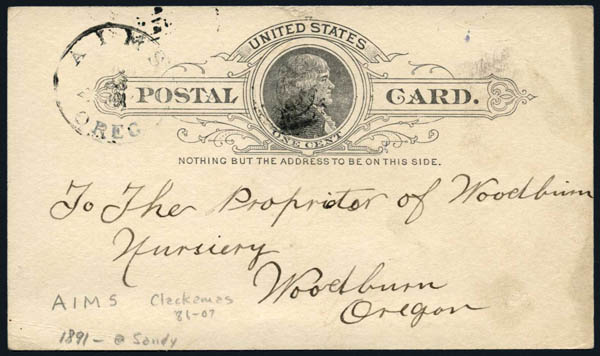 AIMS
OREG
UNITED STATES
POSTAL CARD.
ONE CENT
NOTHING BUT THE ADDRESS TO BE ON THIS SIDE.
To The Propritor of Woodburn
Nursiery
Woodburn
Oregon
AIMS Clackamas
81-07
1891- @ Sandy